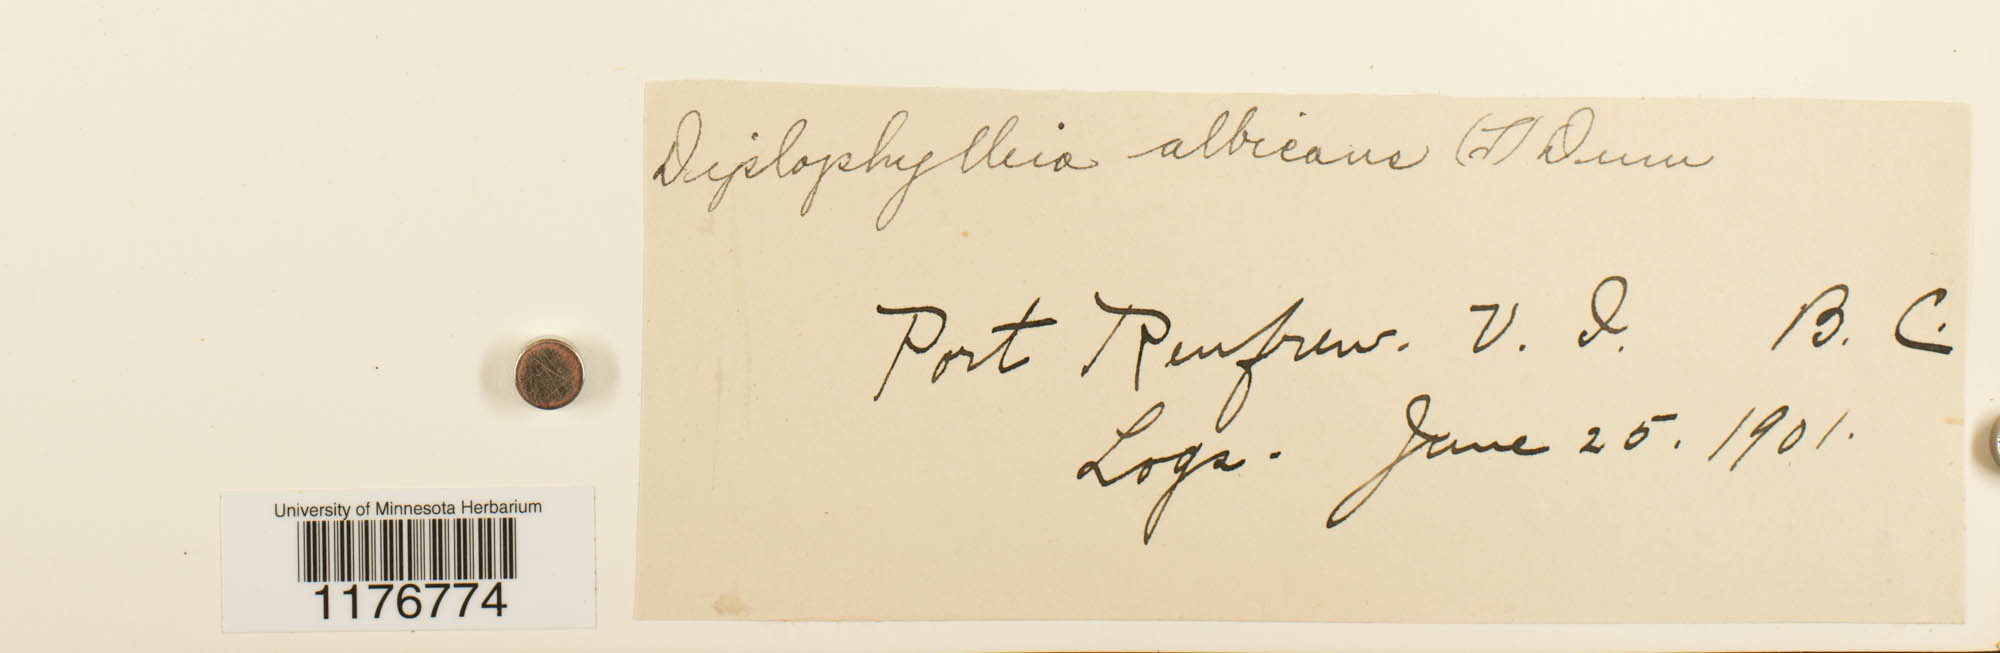 Diplophylleia albicans (L) Dum
Port Renfrew. V. I. B. C.
Logs. June 25. 1901.
University of Minnesota Herbarium
1176774